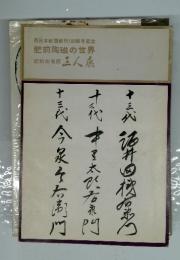 西日本新聞創刊100周年記念
肥前陶磁の世界
肥前出身 三人展
十三代 酒井田柿右衛門
十二代 中里太郎右衛門
十三代 今泉今右衛門